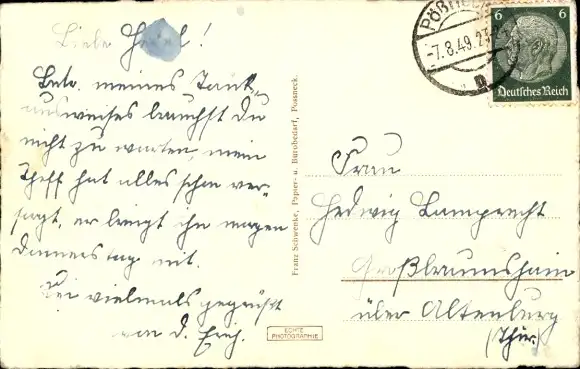 Liebe
Betr. meines
ausweises brauchst Du
nicht zu warten, mein
Cheff hat alles schon ver-
sorgt, er bringt ihn morgen
Donnerstag mit.
Sei vielmals gegrüßt
von d. Erich.
Franz Schwenke, Papier- u. Bürobedarf, Possneck.
ECHTE
PHOTOGRAPHIE
PÖẞNECK
-7.8.49.
6 6
Deutsches Reich
Frau
Hedwig Lamprecht
Großbraunshain
über Altenburg
(Thür.)